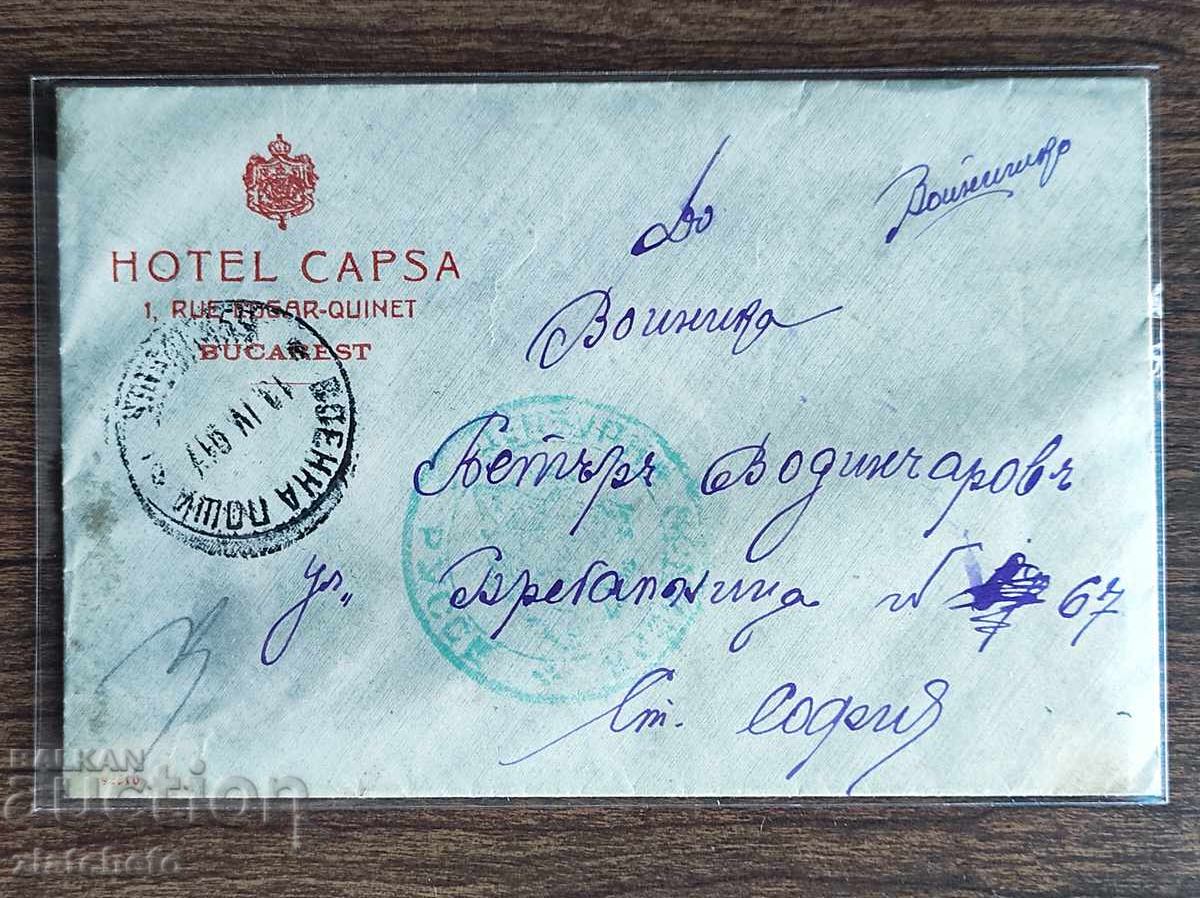 HOTEL CAPSA
1, RUE EDGAR-QUINET
BUCAREST
ВОЕННА ПОЩА
12 IV 917
До
Войнишко
Войника
Петъръ Водинчаровъ
ул. Брегалница № 67
гр. София
РУССЕ
BALKAN
auction
zlatcheto